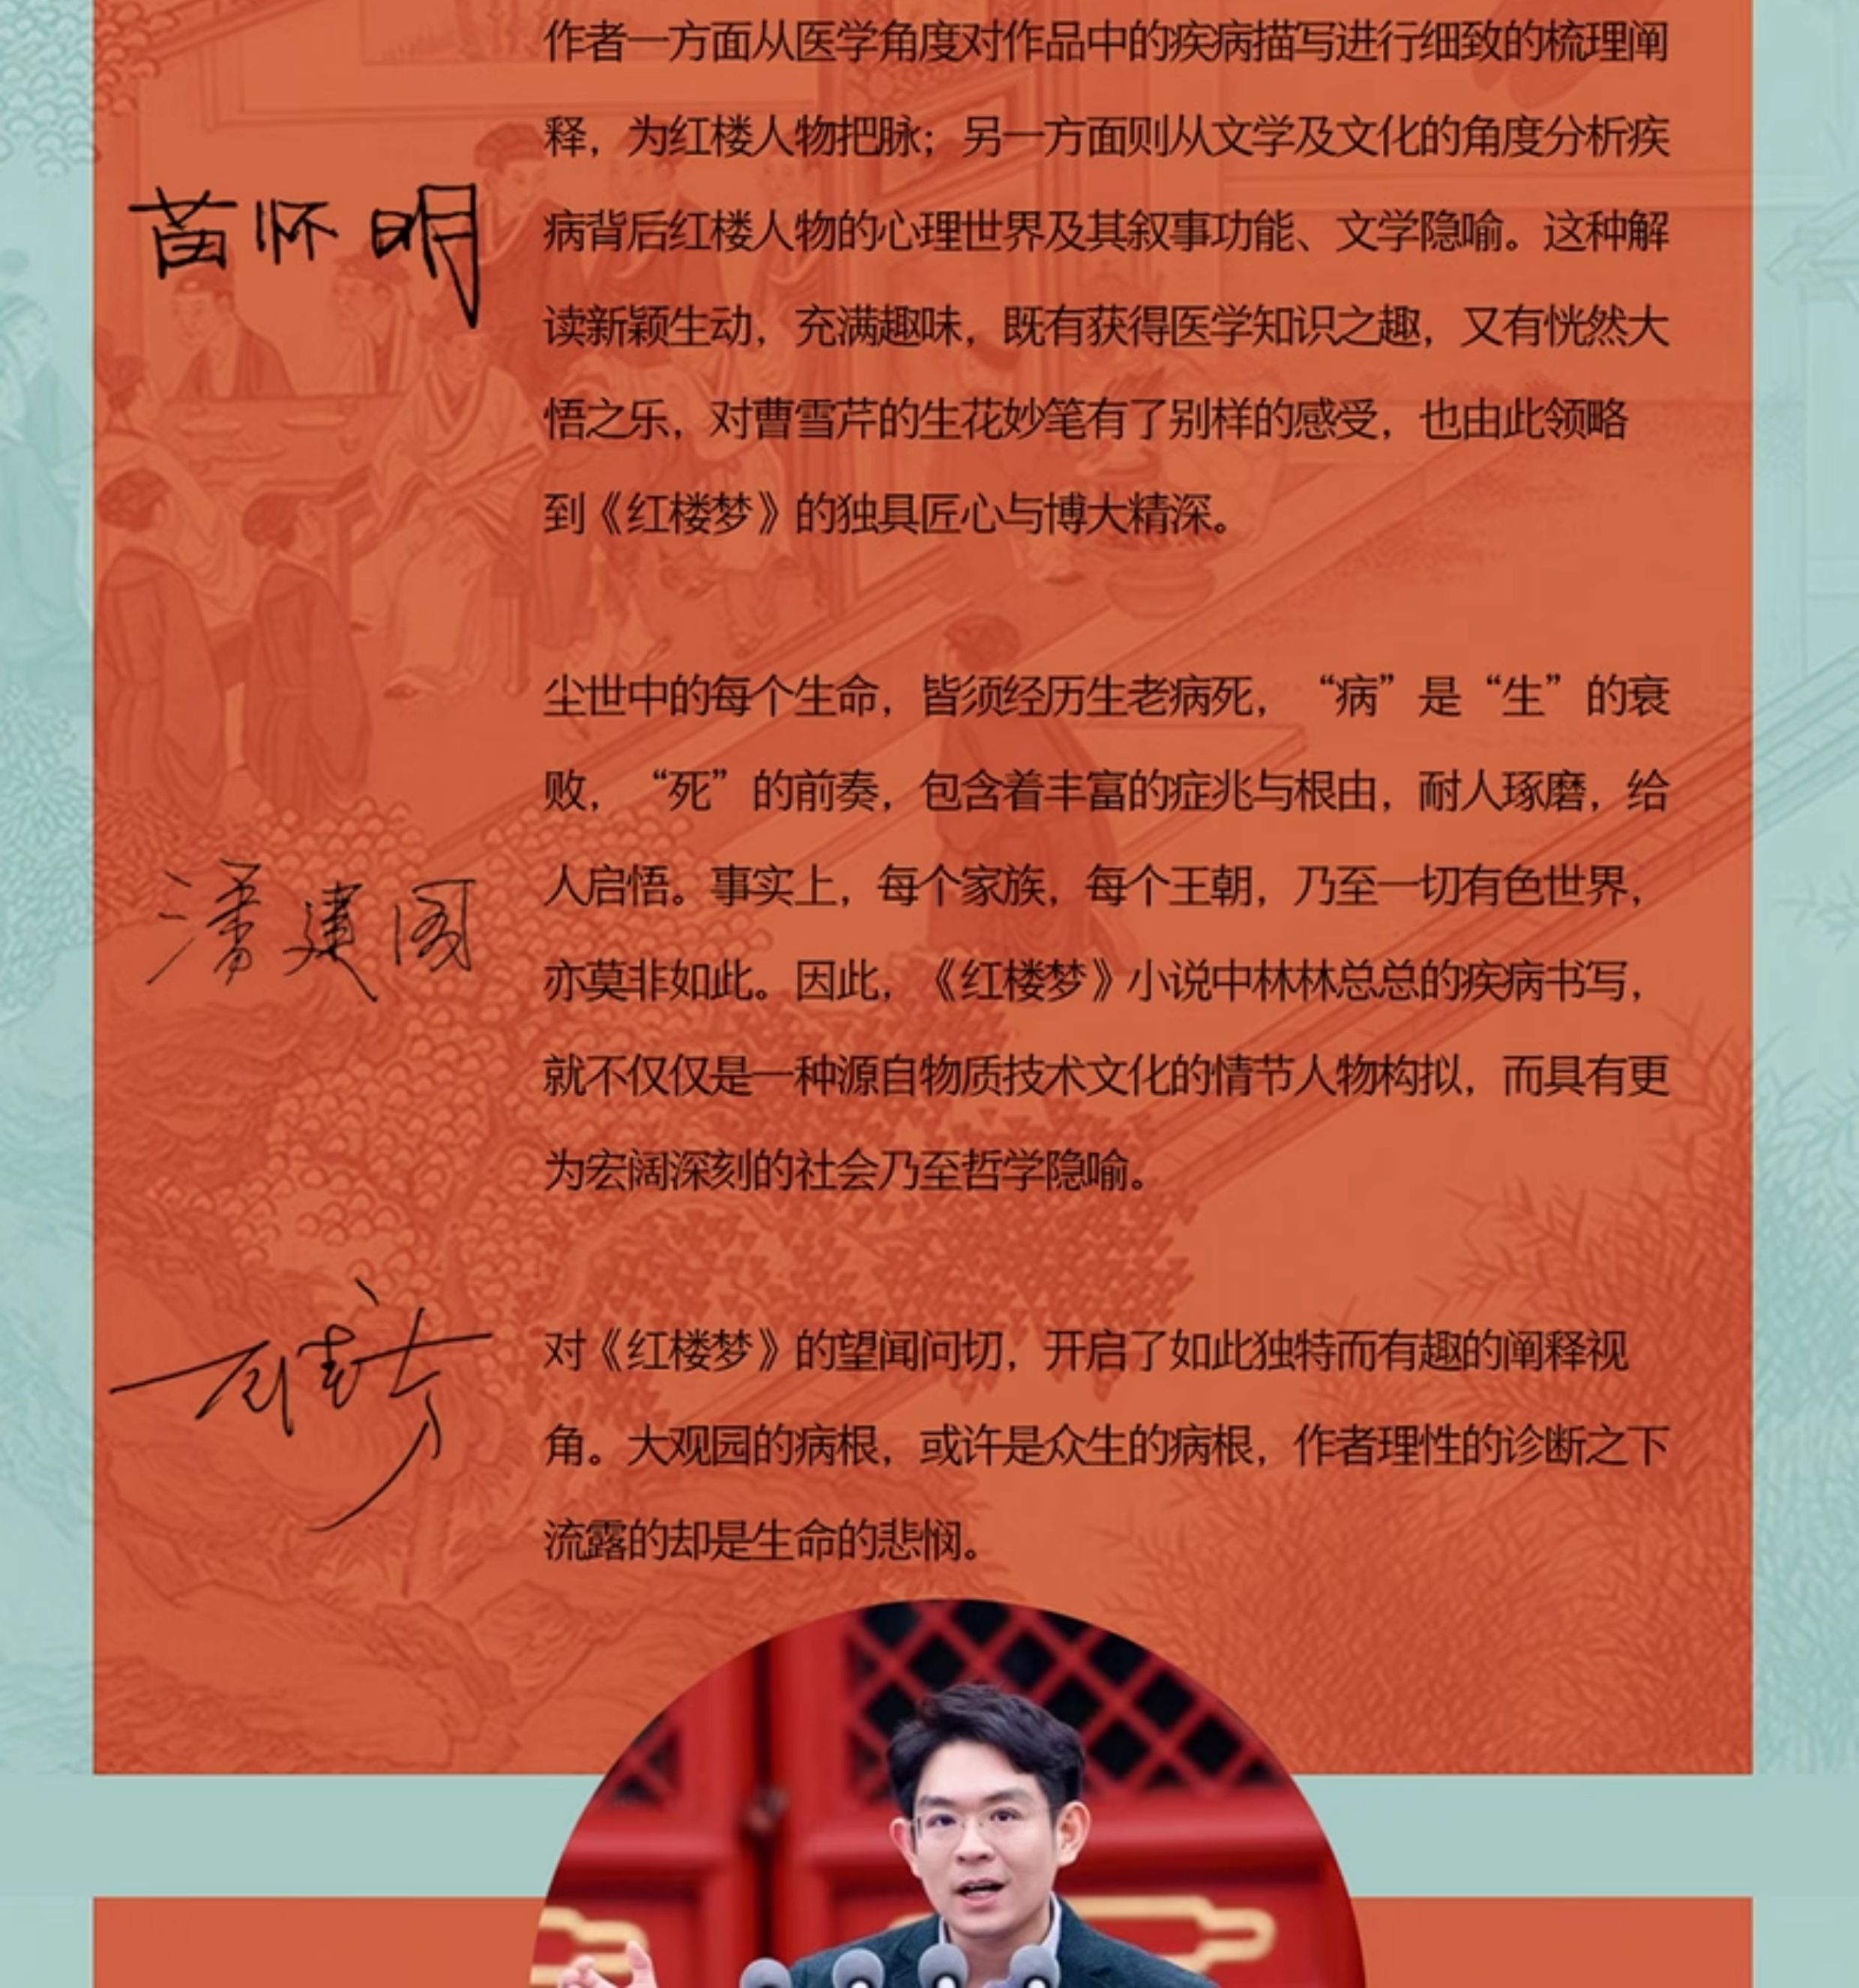 作者一方面从医学角度对作品中的疾病描写进行细致的梳理阐
释，为红楼人物把脉；另一方面则从文学及文化的角度分析疾
苗怀明
病背后红楼人物的心理世界及其叙事功能、文学隐喻。这种解
读新颖生动，充满趣味，既有获得医学知识之趣，又有恍然大
悟之乐，对曹雪芹的生花妙笔有了别样的感受，也由此领略
到《红楼梦》的独具匠心与博大精深。
尘世中的每个生命，皆须经历生老病死，“病”是“生”的衰
败，“死”的前奏，包含着丰富的症兆与根由，耐人琢磨，给
人启悟。事实上，每个家族，每个王朝，乃至一切有色世界，
潘建国
亦莫非如此。因此，《红楼梦》小说中林林总总的疾病书写，
就不仅仅是一种源自物质技术文化的情节人物构拟，而具有更
为宏阔深刻的社会乃至哲学隐喻。
对《红楼梦》的望闻问切，开启了如此独特而有趣的阐释视
角。大观园的病根，或许是众生的病根，作者理性的诊断之下
流露的却是生命的悲悯。